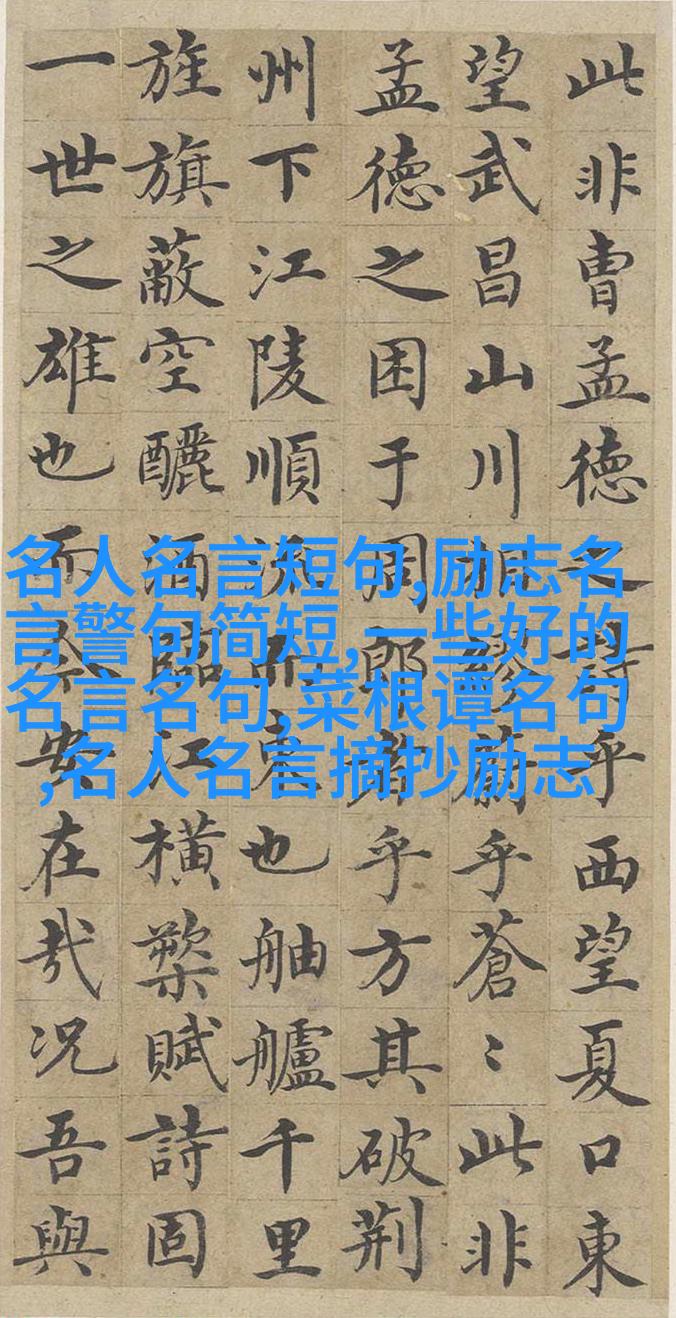 此非曹孟德之詩乎西望夏口東
望武昌山川相繆蔚乎蒼〻此非
孟德之困于周郎者乎方其破荊
州下江陵順流而東也舳艫千里
旌旗蔽空釃酒臨江橫槊賦詩固
一世之雄也而今安在哉况吾與
名人名言短句,励志名
言警句简短,一些好的
名言名句,菜根谭名句
,名人名言摘抄励志